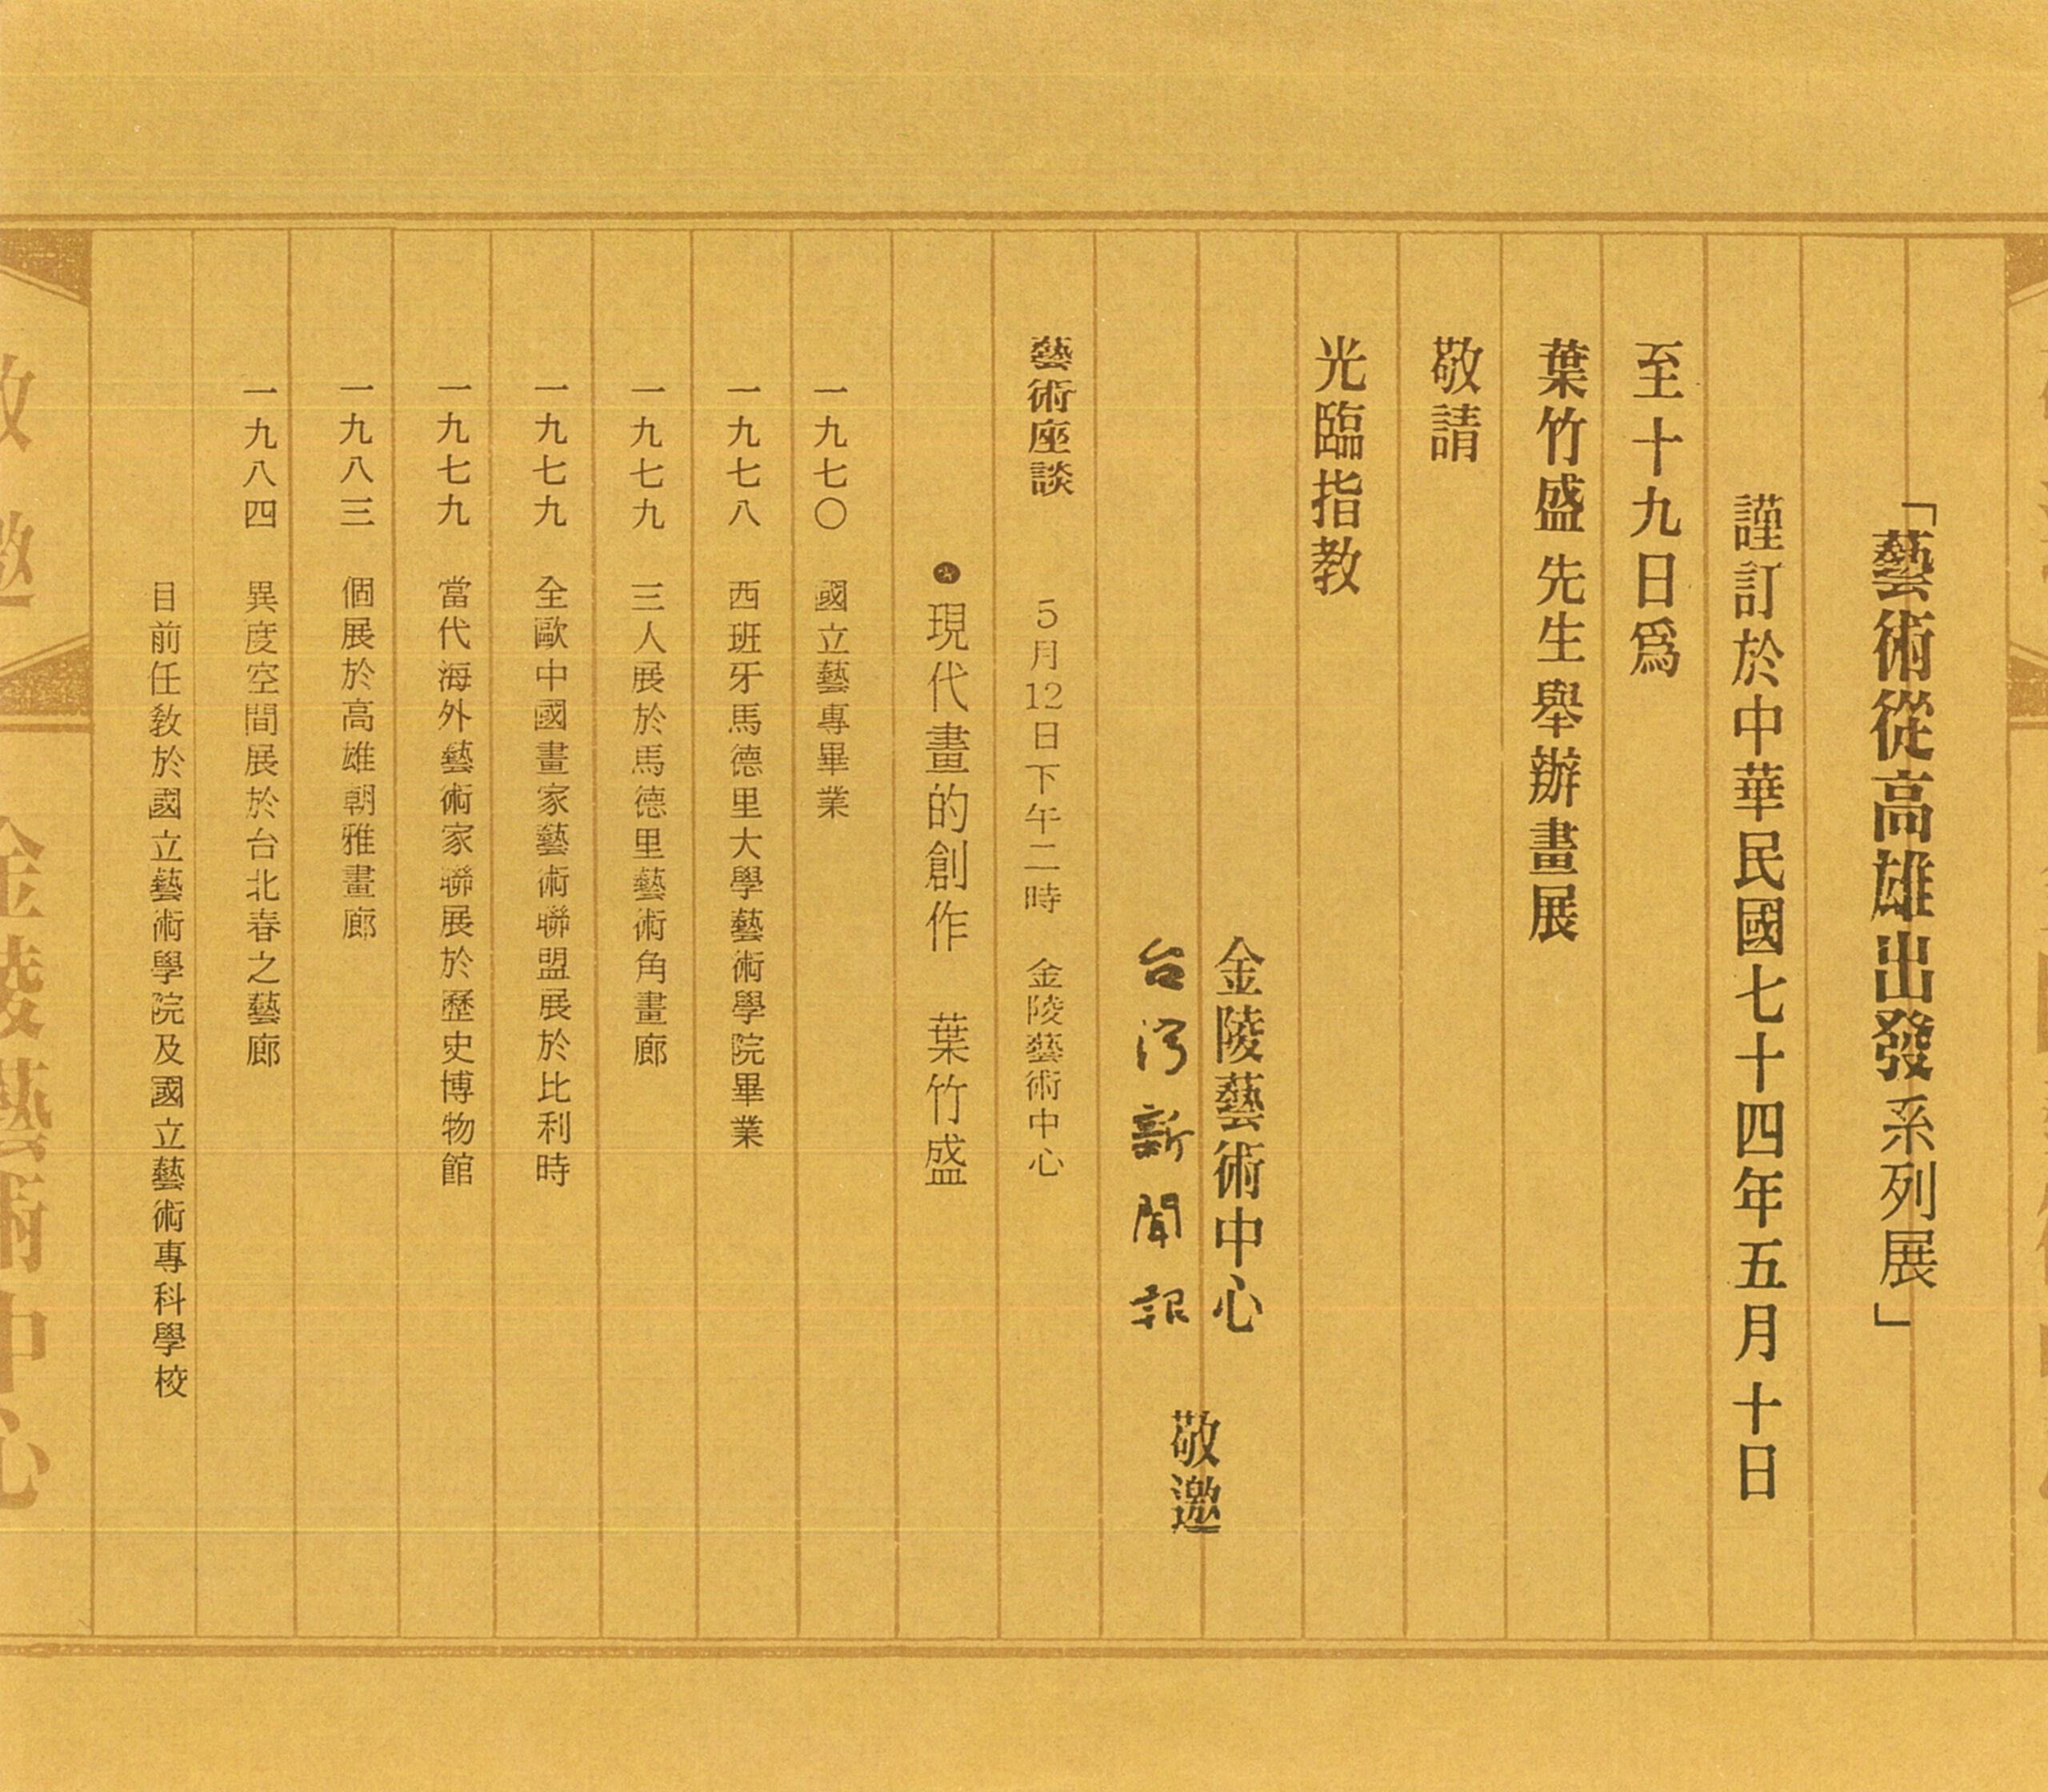 「藝術從高雄出發系列展」
謹訂於中華民國七十四年五月十日
至十九日爲
葉竹盛先生舉辦畫展
敬請
光臨指教
金陵藝術中心
台灣新聞報
敬邀
藝術座談 5月12日下午二時 金陵藝術中心
●現代畫的創作 葉竹盛
一九七〇 國立藝專畢業
一九七八 西班牙馬德里大學藝術學院畢業
一九七九 三人展於馬德里藝術角畫廊
一九七九 全歐中國畫家藝術聯盟展於比利時
一九七九 當代海外藝術家聯展於歷史博物館
一九八三 個展於高雄朝雅畫廊
一九八四 異度空間展於台北春之藝廊
目前任教於國立藝術學院及國立藝術專科學校
敬邀
金陵藝術中心